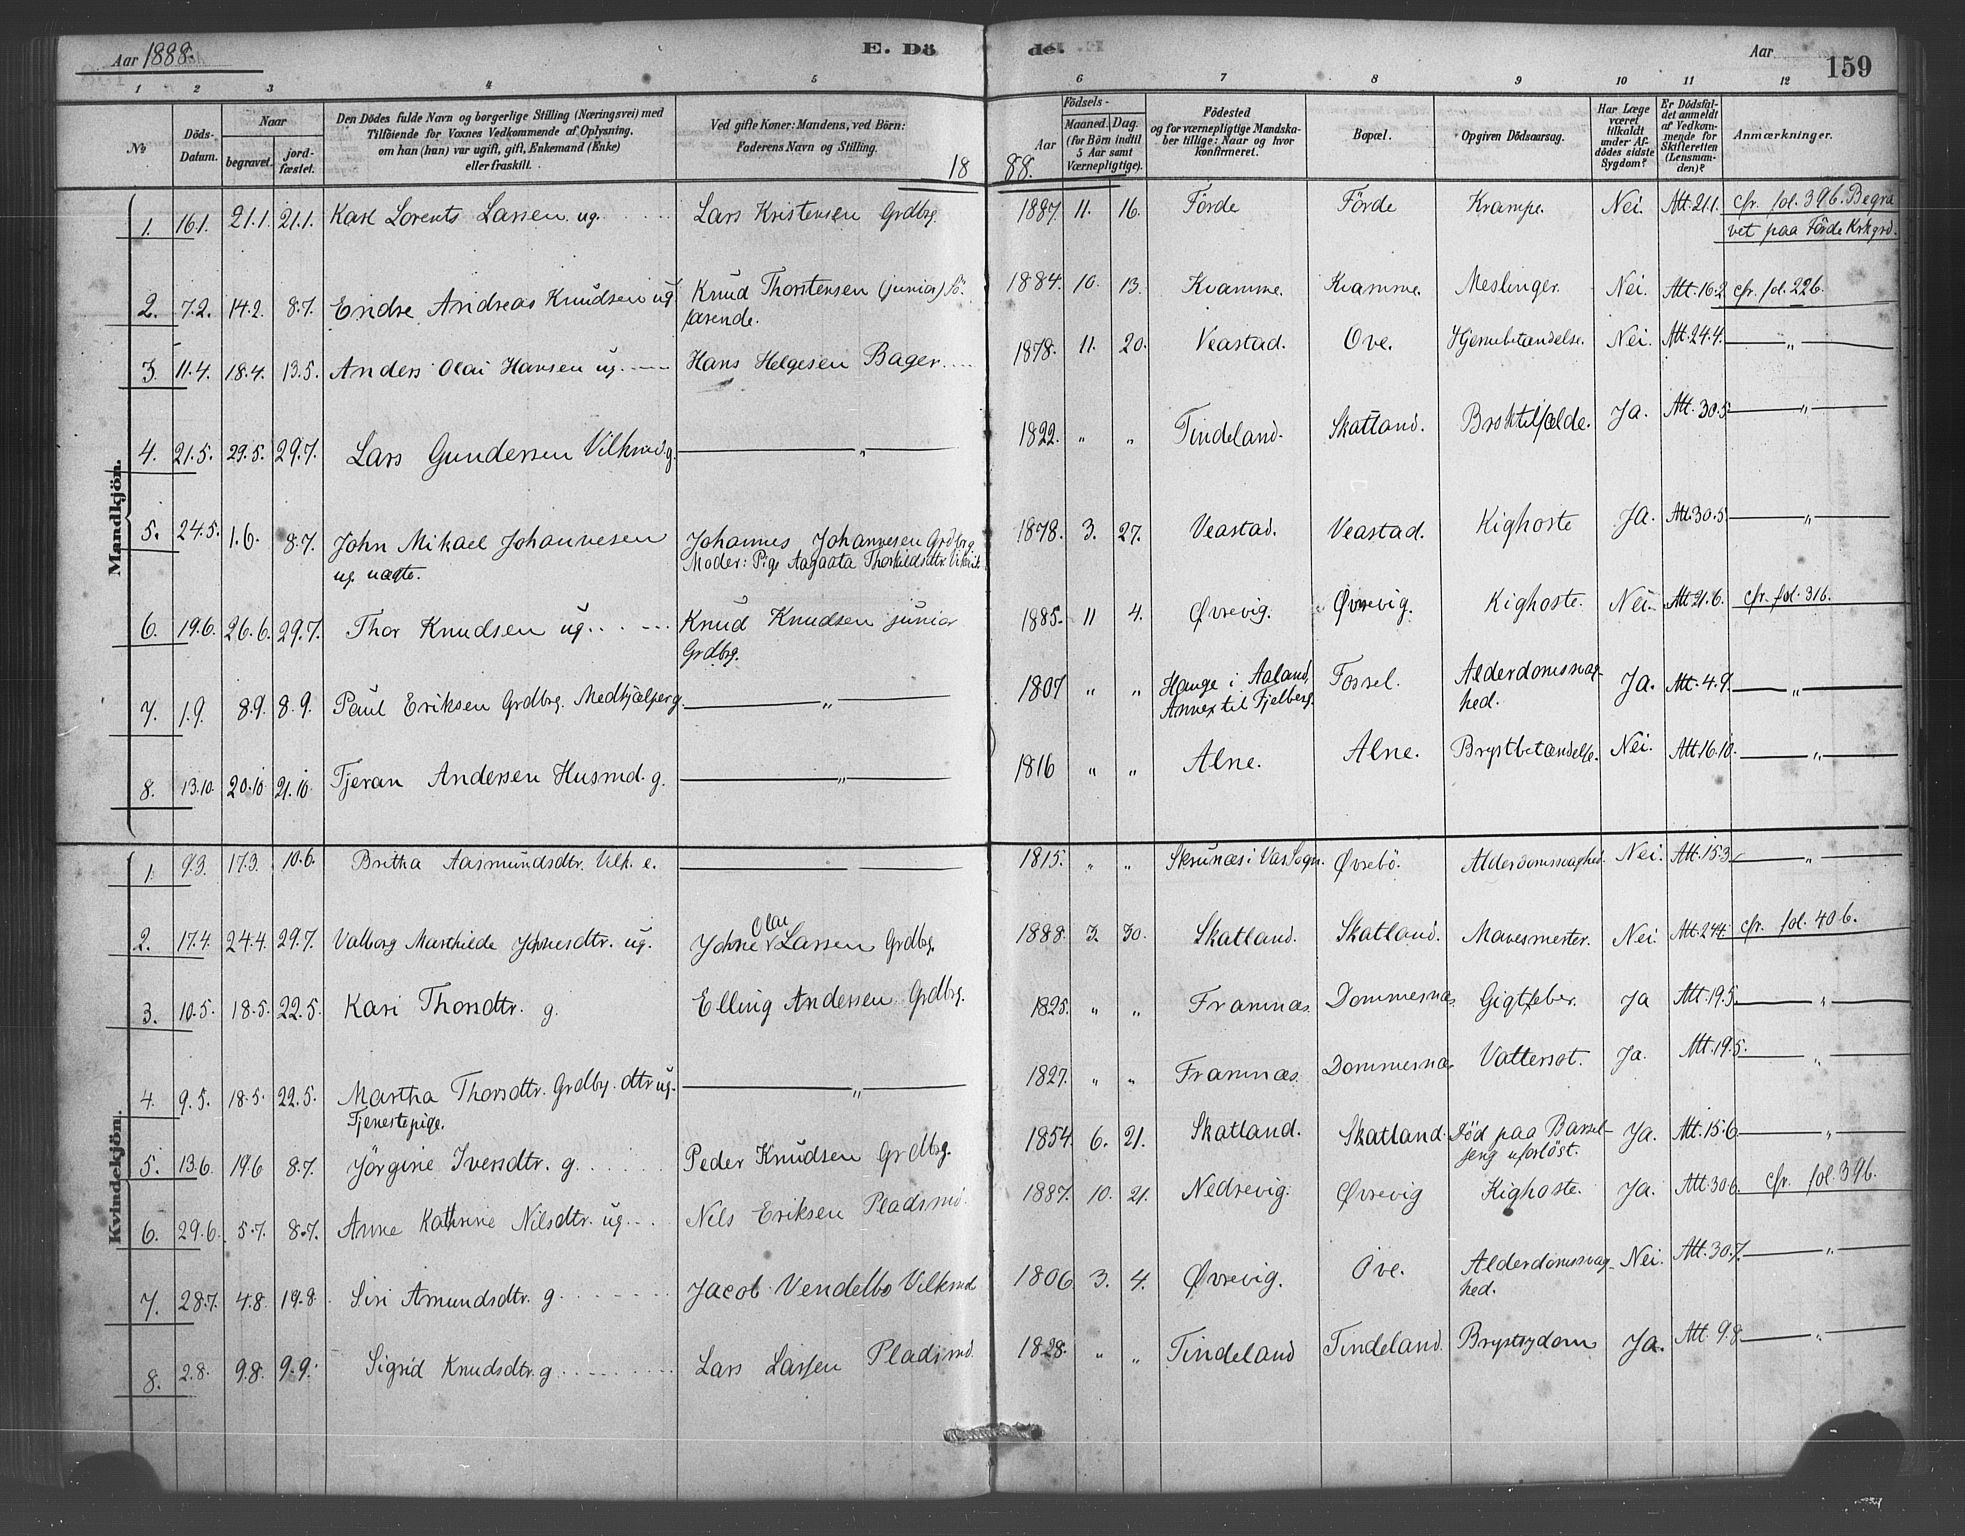 Aar 1888. E. Dö de. Aar 159
1 2 3 4 5 6 7 8 9 10 11 12
No Döds-Datum. Naar begravet. jordfæstet. Den Dödes fulde Navn og borgerlige Stilling (Næringsvei) med Tilföiende for Voxnes Vedkommende af Oplysning, om han (hun) var ugift, gift, Enkemand (Enke) eller fraskilt. Ved gifte Koner: Mandens, ved Börn: Faderens Navn og Stilling. Födsels- Aar Maaned. Dag. (for Börn indtil 5 Aar samt Værnepligtige). Födested og for værnepligtige Mandskaber tillige: Naar og hvor konfirmeret. Bopæl. Opgiven Dödsaarsag. Har Læge været tilkaldt under Afdödes sidste Sygdom? Er Dödsfaldet anmeldt af Vedkommende for Skifteretten (Lensmanden)? Anmærkninger.
18 88.
Mandkjön.
1. 16.1. 21.1. 21.1. Karl Lorents Larsen ug. Lars Kristensen Grdbrg. 1887. 11. 16. Förde Förde Krampe. Nei. Att. 21.1. cfr. fol. 396. Begra
vet paa Förde Krkgrd.
2. 7.2. 14.2. 8.7. Endre Andreas Knudsen ug. Knud Thorstensen (junior) Sö
farende. 1884. 10. 13. Kvamme. Kvamme. Meslinger. Nei. Att. 16.2. cfr. fol. 226.
3. 11.4. 18.4. 13.5. Anders Olai Hansen ug. Hans Helgesen Bager. 1878. 11. 20. Veastad. Ove. Hjernebetændelse. Nei. Att. 24.4. — „ —
4. 21.5. 29.5. 29.7. Lars Gundersen Vilkmd. g. — „ — 1822. „ „ Tindeland. Skatland. Broktilfælde. Ja. Att. 30.5. — „ —
5. 24.5. 1.6. 8.7. John Mikael Johannesen
ug. uægte. Johannes Johannesen Grdbrg.
Moder: Pige Aagaata Thorkildsdtr. 1878. 3. 27. Veastad. Veastad. Kighoste Ja. Att. 30.5. — „ —
6. 19.6. 26.6. 29.7. Thor Knudsen ug. Knud Knudsen junior
Grdbrg. 1885. 11 4. Øvrevig. Øvrevig. Kighoste. Nei. Att. 21.6. cfr. fol. 316.
7. 1.9. 8.9. 8.9. Paul Eriksen Grdbrg. Medhjælper g. — „ — 1807 „ „ Hauge i Aaland,
Annex til Fjelberg. Fossel. Alderdomssvag-
hed. Ja. Att. 4.9. — „ —
8. 13.10. 20.10. 21.10. Tjeran Andersen Husmd. g. — „ — 1816 „ „ Alne. Alne. Brystbetændelse. Nei. Att. 16.10. — „ —
Kvindekjön.
1. 9.3. 17.3. 10.6. Britha Aasmundsdtr. Vilk. e. — „ — 1815. „ „ Skrunæs i Vas Sogn. Øvrebö. Alderdomssvaghed. Nei. Att. 15.3. — „ —
2. 17.4. 24.4. 29.7. Valborg Marthilde Johnesdtr. ug. Johne Olai Larsen Grdbrg. 1888. 3. 30. Skatland. Skatland. Mavesmerter. Nei. Att. 24.4. cfr. fol. 406.
3. 10.5. 18.5. 22.5. Kari Thorsdtr. g. Elling Andersen Grdbrg. 1825. „ „ Framnæs. Dommesnæs Gigtfeber. Ja Att. 19.5. — „ —
4. 9.5. 18.5. 22.5. Martha Thorsdtr. Grdbrg. dtr. ug.
Tjenestepige. — „ — 1827. „ „ Framnæs. Dommesnæs. Vattersot. Ja. Att. 19.5. — „ —
5. 13.6. 19.6 8.7. Jörgine Iversdtr. g. Peder Knudsen Grdbrg. 1854. 6. 21. Skatland. Skatland. Död paa Barsel-
seng uforløst. Ja. Att. 15.6. — „ —
6. 29.6. 5.7. 8.7. Anne Kathrine Nilsdtr. ug. Nils Eriksen Pladsmd. 1887. 10. 21. Nedrevig. Øvrevig Kighoste. Ja. Att. 30.6. cfr. fol. 396.
7. 28.7. 4.8. 19.8. Siri Amundsdtr. g. Jacob Vendelbo Vilkmd. 1806. 3. 4. Øvrevig. Ove. Alderdomssvag-
hed. Nei. Att. 30.7. — „ —
8. 2.8. 9.8. 9.9. Sigrid Knudsdtr. g. Lars Larsen Pladsmd. 1828. „ „ Tindeland Tindeland. Brystsygdom Ja. Att. 9.8. — „ —